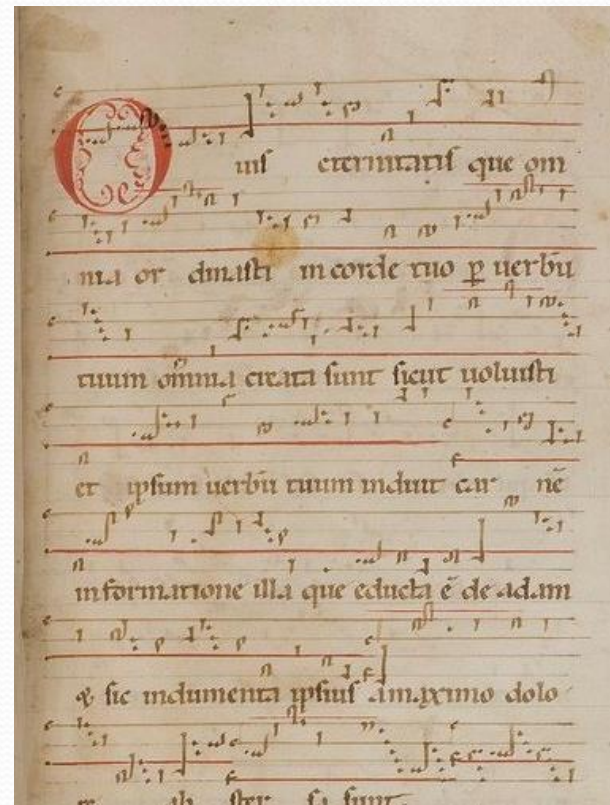 O uis eternitatis que om
nia or dinasti in corde tuo ꝑ uerbū
tuum om̄ia creata sunt sicut uoluisti
et ipsum uerbū tuum induit car nē
in formatione illa que educta ē de adam
& sic indumenta ipsius a maximo dolo
re ab ster sa sunt.